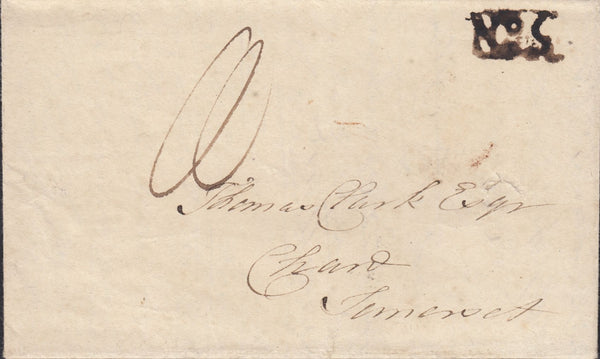 No. 5
Thomas Clark Esqr
Chard
Somerset